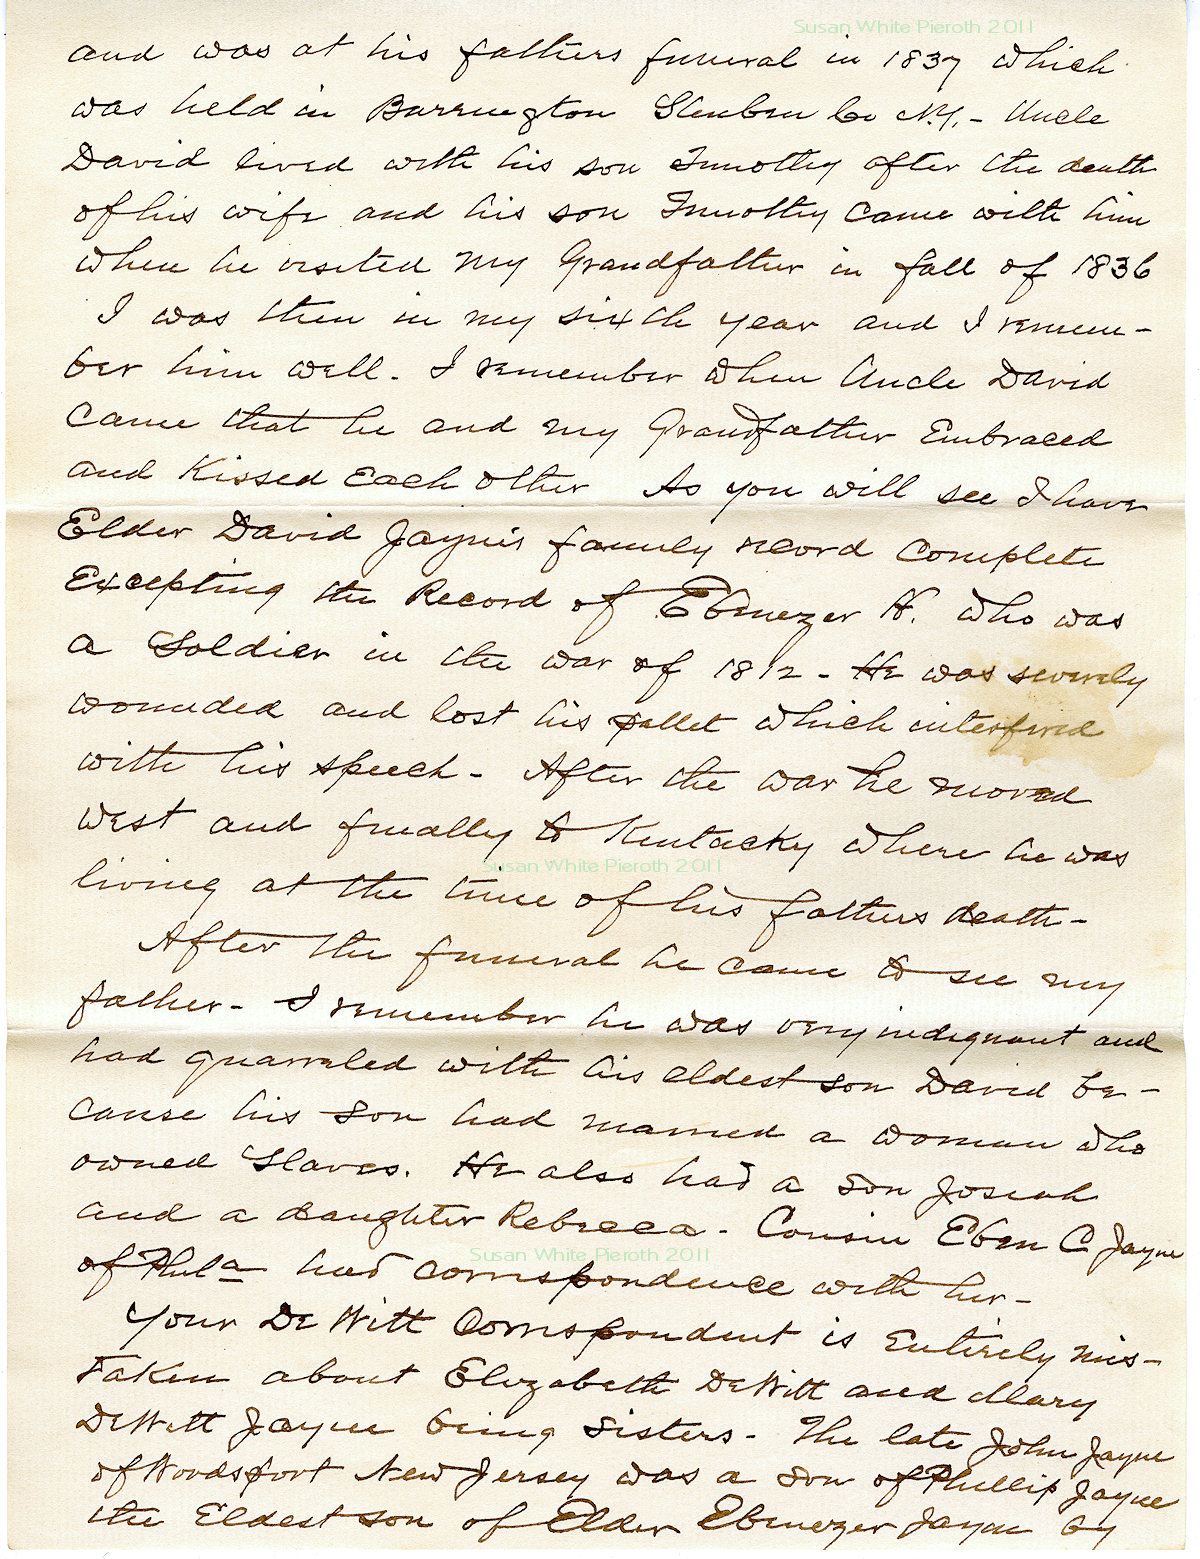 Susan White Pieroth 2011
and was at his fathers funeral in 1837 which
was held in Barrington Steuben Co N.Y. - Uncle
David lived with his son Timothy after the death
of his wife and his son Timothy came with him
when he visited my Grandfather in fall of 1836
I was then in my sixth year and I remem-
ber him well. I remember when Uncle David
came that he and my Grandfather Embraced
and Kissed Each other As you will see I have
Elder David Jayne's family record complete
Excepting the Record of Ebenezer H. who was
a Soldier in the war of 1812 - He was severely
wounded and lost his pallet which interfered
with his speech - After the war he moved
west and finally to Kentucky where he was
Susan White Pieroth 2011
living at the time of his fathers death -
After the funeral he came to see my
father - I remember he was very indignant and
had quarreled with his eldest son David be-
cause his son had married a woman who
owned Slaves. He also had a son Josiah
and a daughter Rebecca - Cousin Eben C Jayne
Susan White Pieroth 2011
of Phila had correspondence with her -
Your DeWitt Correspondent is Entirely mis-
taken about Elizabeth DeWitt and Mary
DeWitt Jayne being sisters - The late John Jayne
of Woodsport New Jersey was a son of Phillip Jayne
the Eldest son of Elder Ebenezer Jayne by